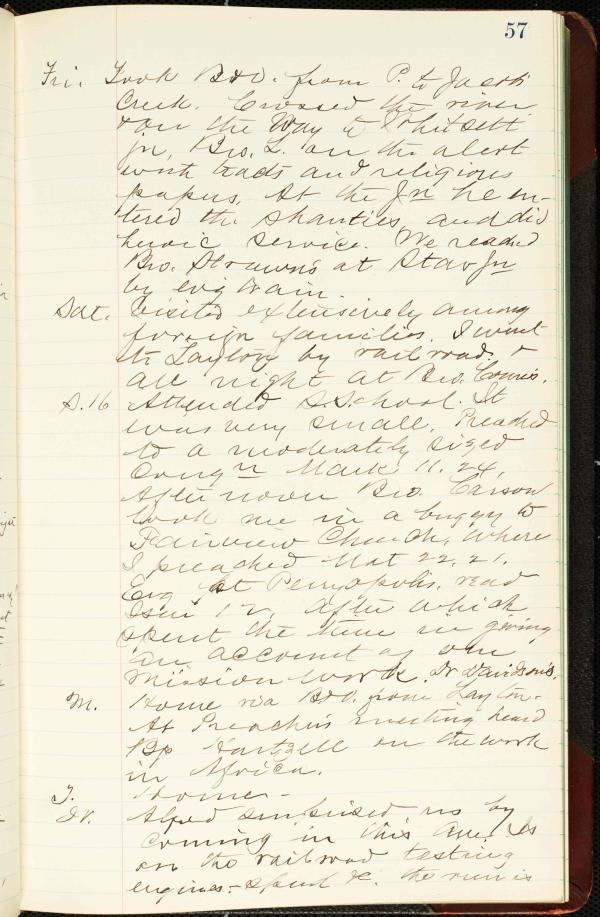 57
Fri. Took B&O. from P. to Jacobs
Creek. Crossed the river
& on the way to Whitsett
Jn, Bro. L. on the alert
with tracts and religious
papers. At the Jn he en-
tered the shanties, and did
heroic service. We reached
Bro. Strawn's at Star Jn
by evg train.
Sat. Visited extensively among
foreign families. I went
to Layton by railroad, &
all night at Bro.
S. 16 Attended S. School. It
was very small. Preached
to a moderately sized
Congn Mark 11. 24.
Afternoon Bro. Carson
took me in a buggy to
Fairview Church, where
I preached Mat 22, 21.
Evg at Perryopolis. read
Isai 12, after which
spent the time in giving
an account of our
mission work. Dr Davidson's.
M. Home via B&O. from Layton.
At Preachers meeting heard
Bp Hartzell on the work
in Africa.
T. Home -
W. Alfred surprised us by
coming in this Is
on the railroad testing
engines - speed &c. the run is